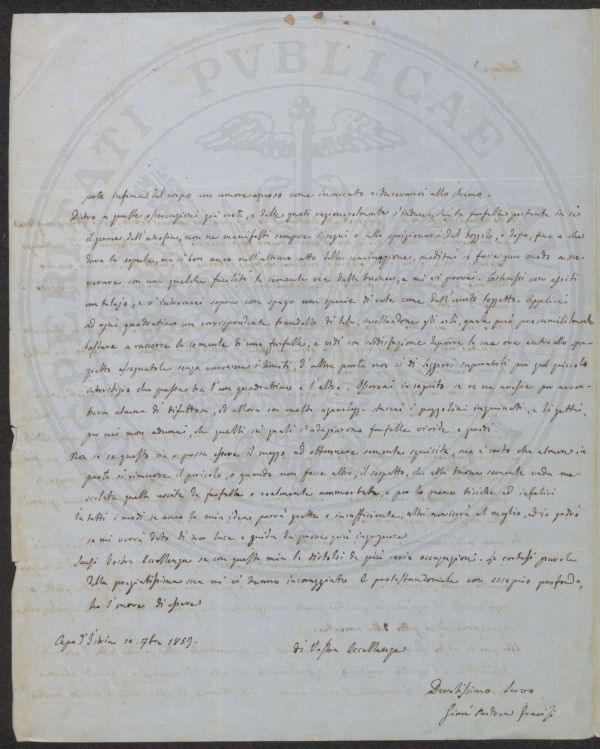 parte inferiore del corpo un umore acquoso come innacato riducevansi allo stremo.
Dietro a queste osservazioni già note, e dalle quali ragionevolmente s'induce, che la farfalla portante in sè
il germe dell'atrofia, non ne manifesti sempre i segni o allo sprigionarsi dal bozzolo, o dopo, fino a che
dura la copula, ma sì bene anco nell'ultimo atto della seminazione, meditai se fosse pur modo a sce-
verare con una qualche facilità la semente rea dalla buona, e mi vi provai. Costrussi con assiti
un telajo, e v'introdussi sopra con spago una specie di rete come dall'unito
ad ogni quadratino un corrispondente brandello di tela, incollandone gli orli, quale può presumibilmente
bastare a raccorre la semente di una farfalla, e vidi con soddisfazione deporre le sue ova entro lo spa-
zietto assegnatole senza varcarne i limiti, d'altra parte non sì di leggeri superabili per quel piccolo
interstizio che passava tra l'un quadratino e l'altro. Osservai in seguito se ve ne avesse per avven-
tura alcuna di difettosa, ed allora con molta agevolezza staccai i pezzolini inquinati, e li gettai,
per cui non adunai, che quelli su quali s'adagiarono farfalle vivide e prodi.
Non so se questo sia o possa essere il mezzo ad ottenere semente squisita, ma è certo che almeno in
parte si rimuove il pericolo, o quando non fosse altro, il sospetto, che alla buona semente vada me-
scolata quella uscita da farfalle o realmente ammorbate, o per lo meno tisiche ed infelici
In tutti i modi se anco la mia idea parrà gretta o insufficiente, altri riuscirà al meglio, ed io godrò
se mi verrà dato di aver luce e guida da prove più ingegnose
Scusi Vostra Eccellenza se con questa mia la distolsi da più serie occupazioni. Le cortesi parole
della pregiatissima sua mi vi hanno incoraggiato. E protestandomele con ossequio profondo,
ho l'onore di essere
Capo d'Istria 10. 7bre 1859.
di Vostra Eccellenza
Devotissimo Servo
Gian Andrea Gravisi
PVBLICAE